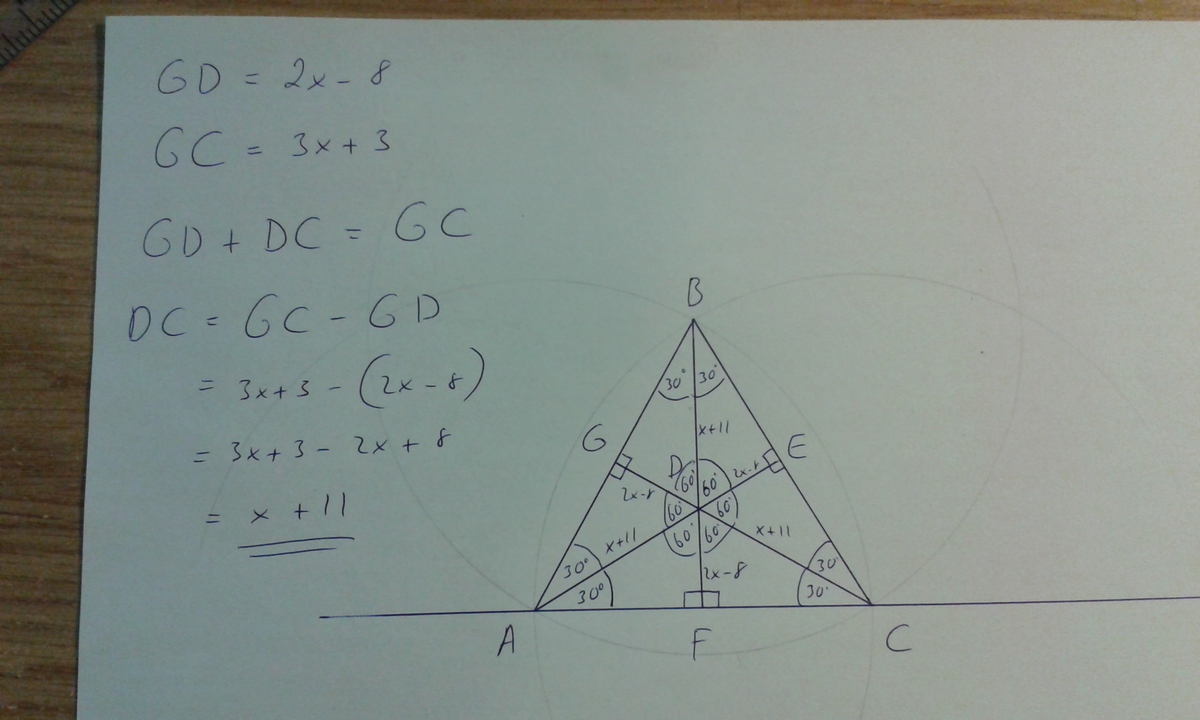 GD = 2x - 8
GC = 3x + 3
GD + DC = GC
DC = GC - GD
= 3x + 3 - (2x - 8)
= 3x + 3 - 2x + 8
= x + 11
B
30° 30°
x+11
G
E
D
60° 60°
2x-8
2x-8
60° 60°
60° 60°
x+11
x+11
2x-8
30°
30°
30°
30°
A
F
C